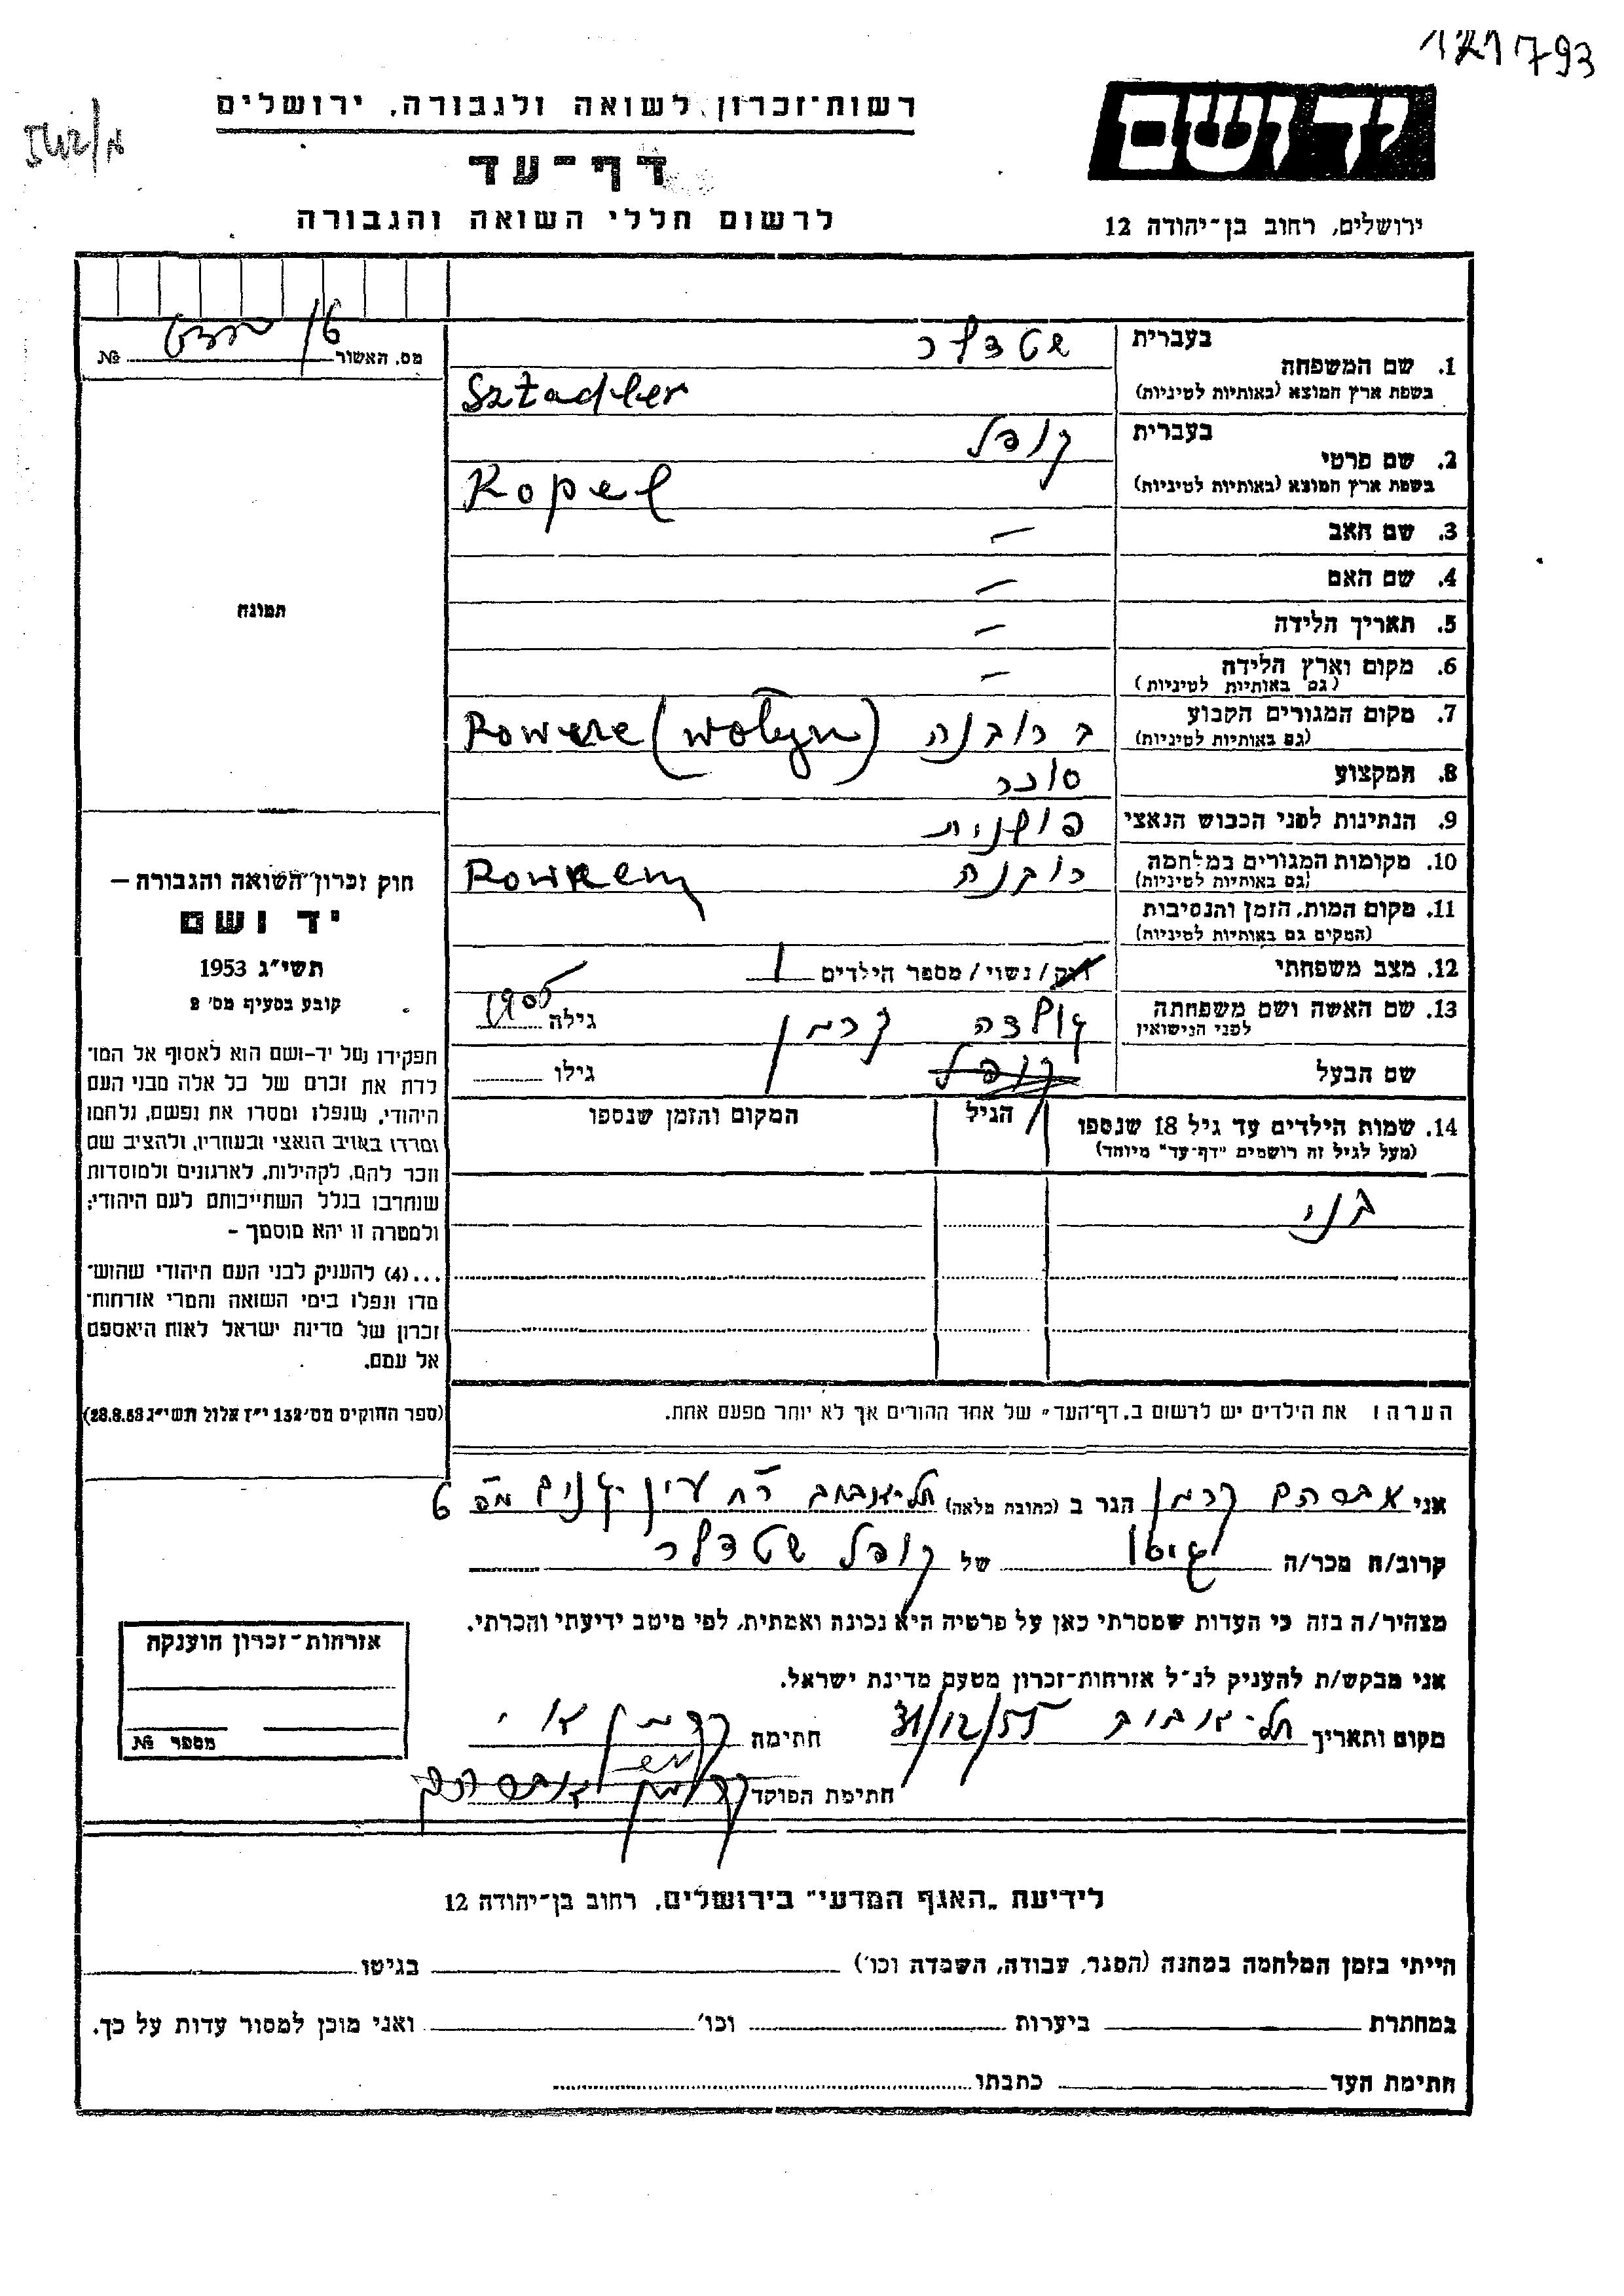 121793
רשות-זכרון לשואה ולגבורה, ירושלים
יד ושם
דף-עד
לרשום חללי השואה והגבורה
ירושלים, רחוב בן-יהודה 12
מס. האשור № 6/
1. שם המשפחה בעברית שטדלר
בשפת ארץ המוצא (באותיות לטיניות) Sztadler
2. שם פרטי בעברית קופל
בשפת ארץ המוצא (באותיות לטיניות) Kopel
3. שם האב —
4. שם האם —
5. תאריך הלידה —
6. מקום וארץ הלידה —
(גם באותיות לטיניות)
7. מקום המגורים הקבוע ברובנה Rowene (Wołyn)
(גם באותיות לטיניות)
8. המקצוע סוחר
9. הנתינות לפני הכבוש הנאצי פולנית
10. מקומות המגורים במלחמה רובנה
(גם באותיות לטיניות)
11. מקום המות, הזמן והנסיבות
(המקום גם באותיות לטיניות)
12. מצב משפחתי רוק/ נשוי/ מספר הילדים 1
13. שם האשה ושם משפחתה גולדה קרמן גילה 1905
לפני הנישואין
שם הבעל קופל גילו
14. שמות הילדים עד גיל 18 שנספו הגיל המקום והזמן שנספו
(מעל לגיל זה רושמים "דף-עד" מיוחד)
בני
הערה: את הילדים יש לרשום ב"דף-העד" של אחד ההורים אך לא יותר מפעם אחת.
תמונה
חוק זכרון השואה והגבורה —
יד ושם
תשי"ג 1953
קובע בסעיף מס' 2
תפקידו של יד-ושם הוא לאסוף אל המו־
לדת את זכרם של כל אלה מבני העם
היהודי, שנפלו ומסרו את נפשם, נלחמו
ומרדו באויב הנאצי ובעוזריו, ולהציב שם
וזכר להם, לקהילות, לארגונים ולמוסדות
שנחרבו בגלל השתייכותם לעם היהודי;
ולמטרה זו יהא מוסמך –
...(4) להעניק לבני העם היהודי שהוש־
מדו ונפלו בימי השואה והמרי אזרחות־
זכרון של מדינת ישראל לאות היאספם
אל עמם.
(ספר החוקים מס' 132 י"ז אלול תשי"ג 28.8.53)
אני אברהם קרמן הגר ב (כתובת מלאה) תל-אביב רח עין יעקב מס 6
קרוב/ה מכר/ה גיסו של קופל שטדלר
מצהיר/ה בזה כי העדות שמסרתי כאן על פרטיה היא נכונה ואמתית, לפי מיטב ידיעתי והכרתי.
אני מבקש/ת להעניק לנ"ל אזרחות-זכרון מטעם מדינת ישראל.
מקום ותאריך תל-אביב 31/12/55 חתימה קרמן
חתימת הפוקד קרמן אברהם
אזרחות-זכרון הוענקה
מספר №
לידיעת "האגף המדעי" בירושלים, רחוב בן-יהודה 12
הייתי בזמן המלחמה במחנה (הסגר, עבודה, השמדה וכו') בגיטו
במחתרת ביערות וכו' ואני מוכן למסור עדות על כך.
חתימת העד כתבתו